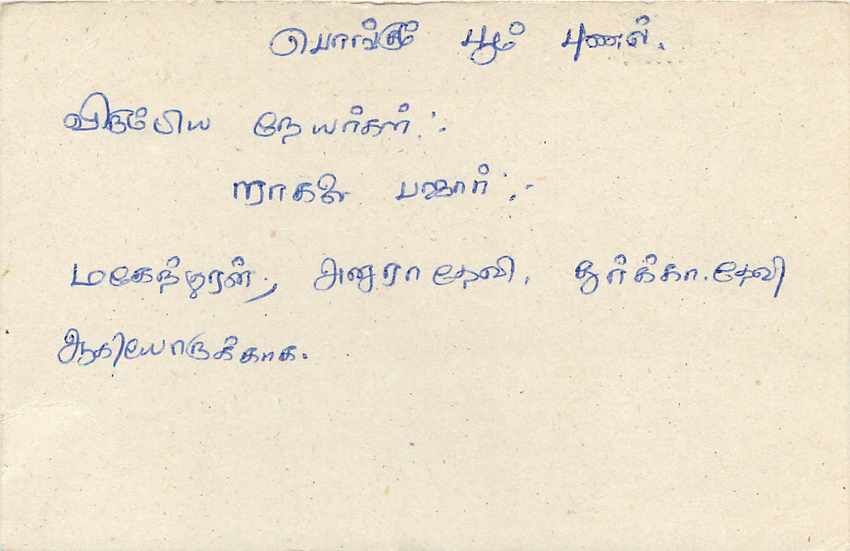 பொங்கும் பூம் புனல்.
விரும்பிய நேயர்கள் :-
ராகலை பஜார் :-
மகேந்திரன், அனுராதேவி, துர்க்கா.தேவி
ஆகியோருக்காக.